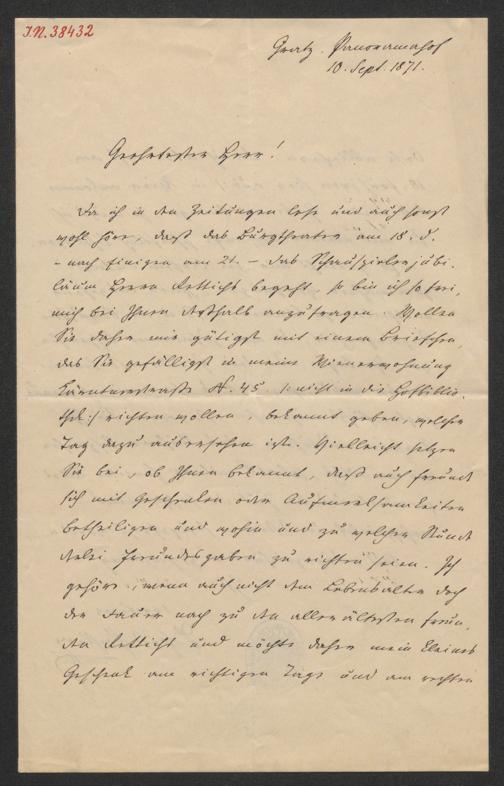 I.N. 38432
Gratz. Panoramahof
10. Sept. 1871.
Geehrtester Herr!
Da ich in den Zeitungen lese und auch sonst
wohl höre, daß das Burgtheater am 18. d.
– nach Einigen am 21. – das Schauspielerjubi-
läum Herrn Rettichs begeht, so bin ich so frei,
mich bei Ihnen deßhalb anzufragen. Wollen
Sie daher mir gütigst mit einem Briefchen,
das Sie gefälligst in meine Wienerwohnung
Kärntnerstraße N. 45. /: nicht in die Hofbiblio-
thek :/ richten wollen, bekannt geben, welcher
Tag dazu ausersehen ist. Vielleicht setzen
Sie bei, ob Ihnen bekannt, daß auch Freunde
sich mit Geschenken oder Aufmerksamkeiten
betheiligen und wohin und zu welcher Stunde
derlei Freundesgaben zu richten seien. Ich
gehöre, wenn auch nicht dem Lebensalter doch
der Dauer nach zu den allerältesten Freun-
den Rettichs und möchte daher mein kleines
Geschenk am richtigen Tage und am rechten